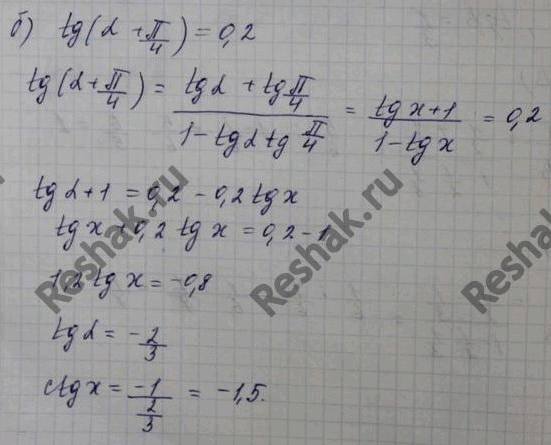 б) tg(α + π/4) = 0,2
tg(α + π/4) = (tgα + tg π/4)/(1 - tgα tg π/4) = (tg x + 1)/(1 - tg x) = 0,2
tgα + 1 = 0,2 - 0,2 tg x
tg x + 0,2 tg x = 0,2 - 1
1,2 tg x = -0,8
tgα = -2/3
ctg x = -1/(2/3) = -1,5.
Reshak.ru
Reshak.ru
Reshak.ru